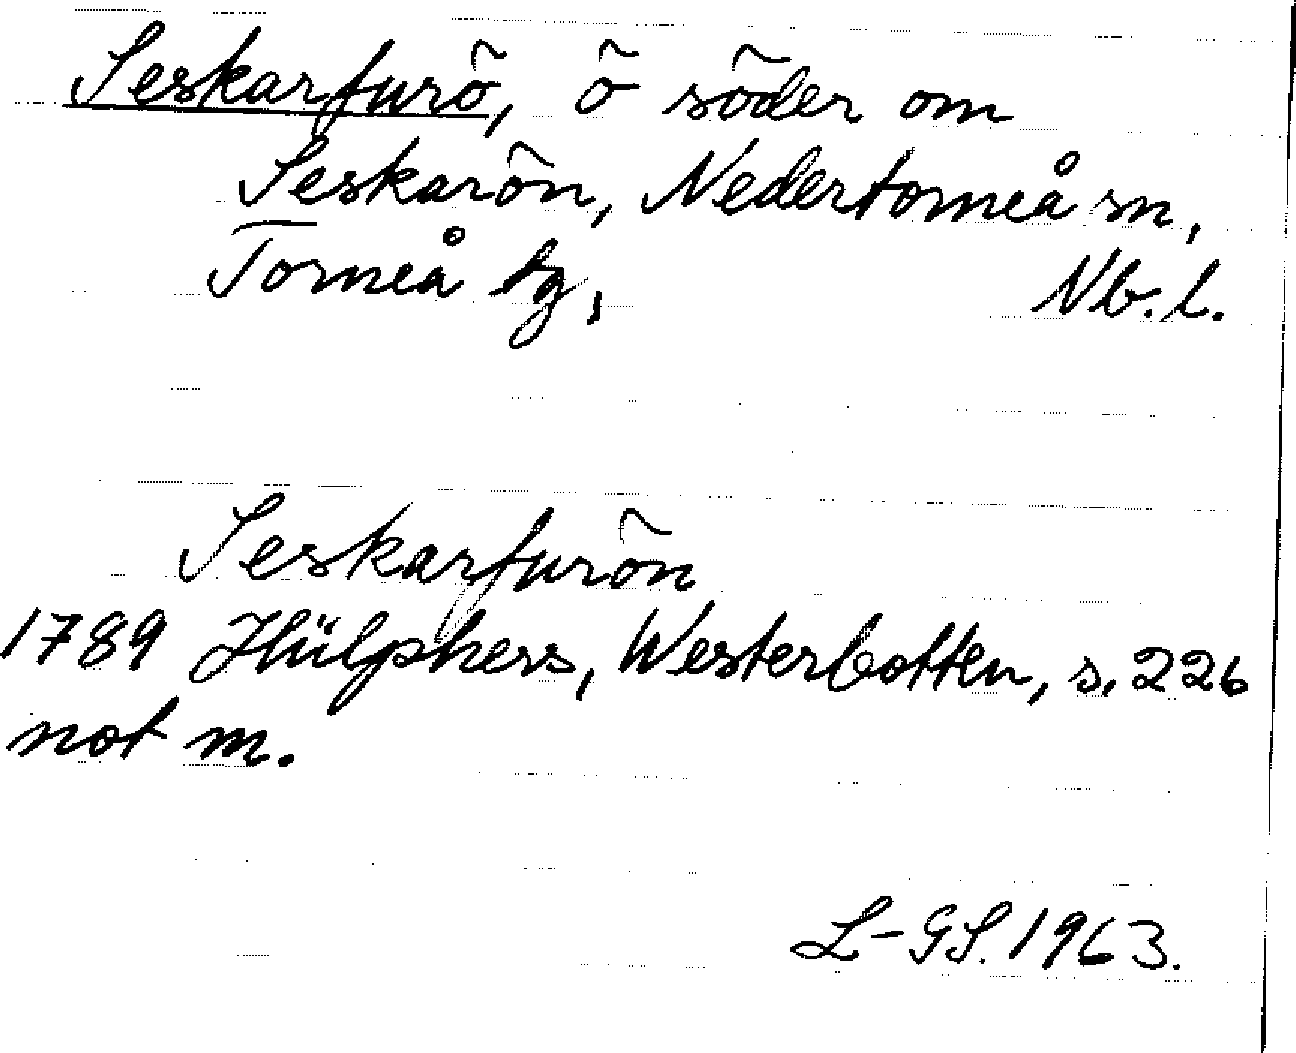 Seskarfurö, ö söder om
Seskarön, Nedertorneå sn,
Torneå tg, Nb.l.
Seskarfurön
1789 Hülphers, Westerbotten, s. 226
not m.
L-GS. 1963.